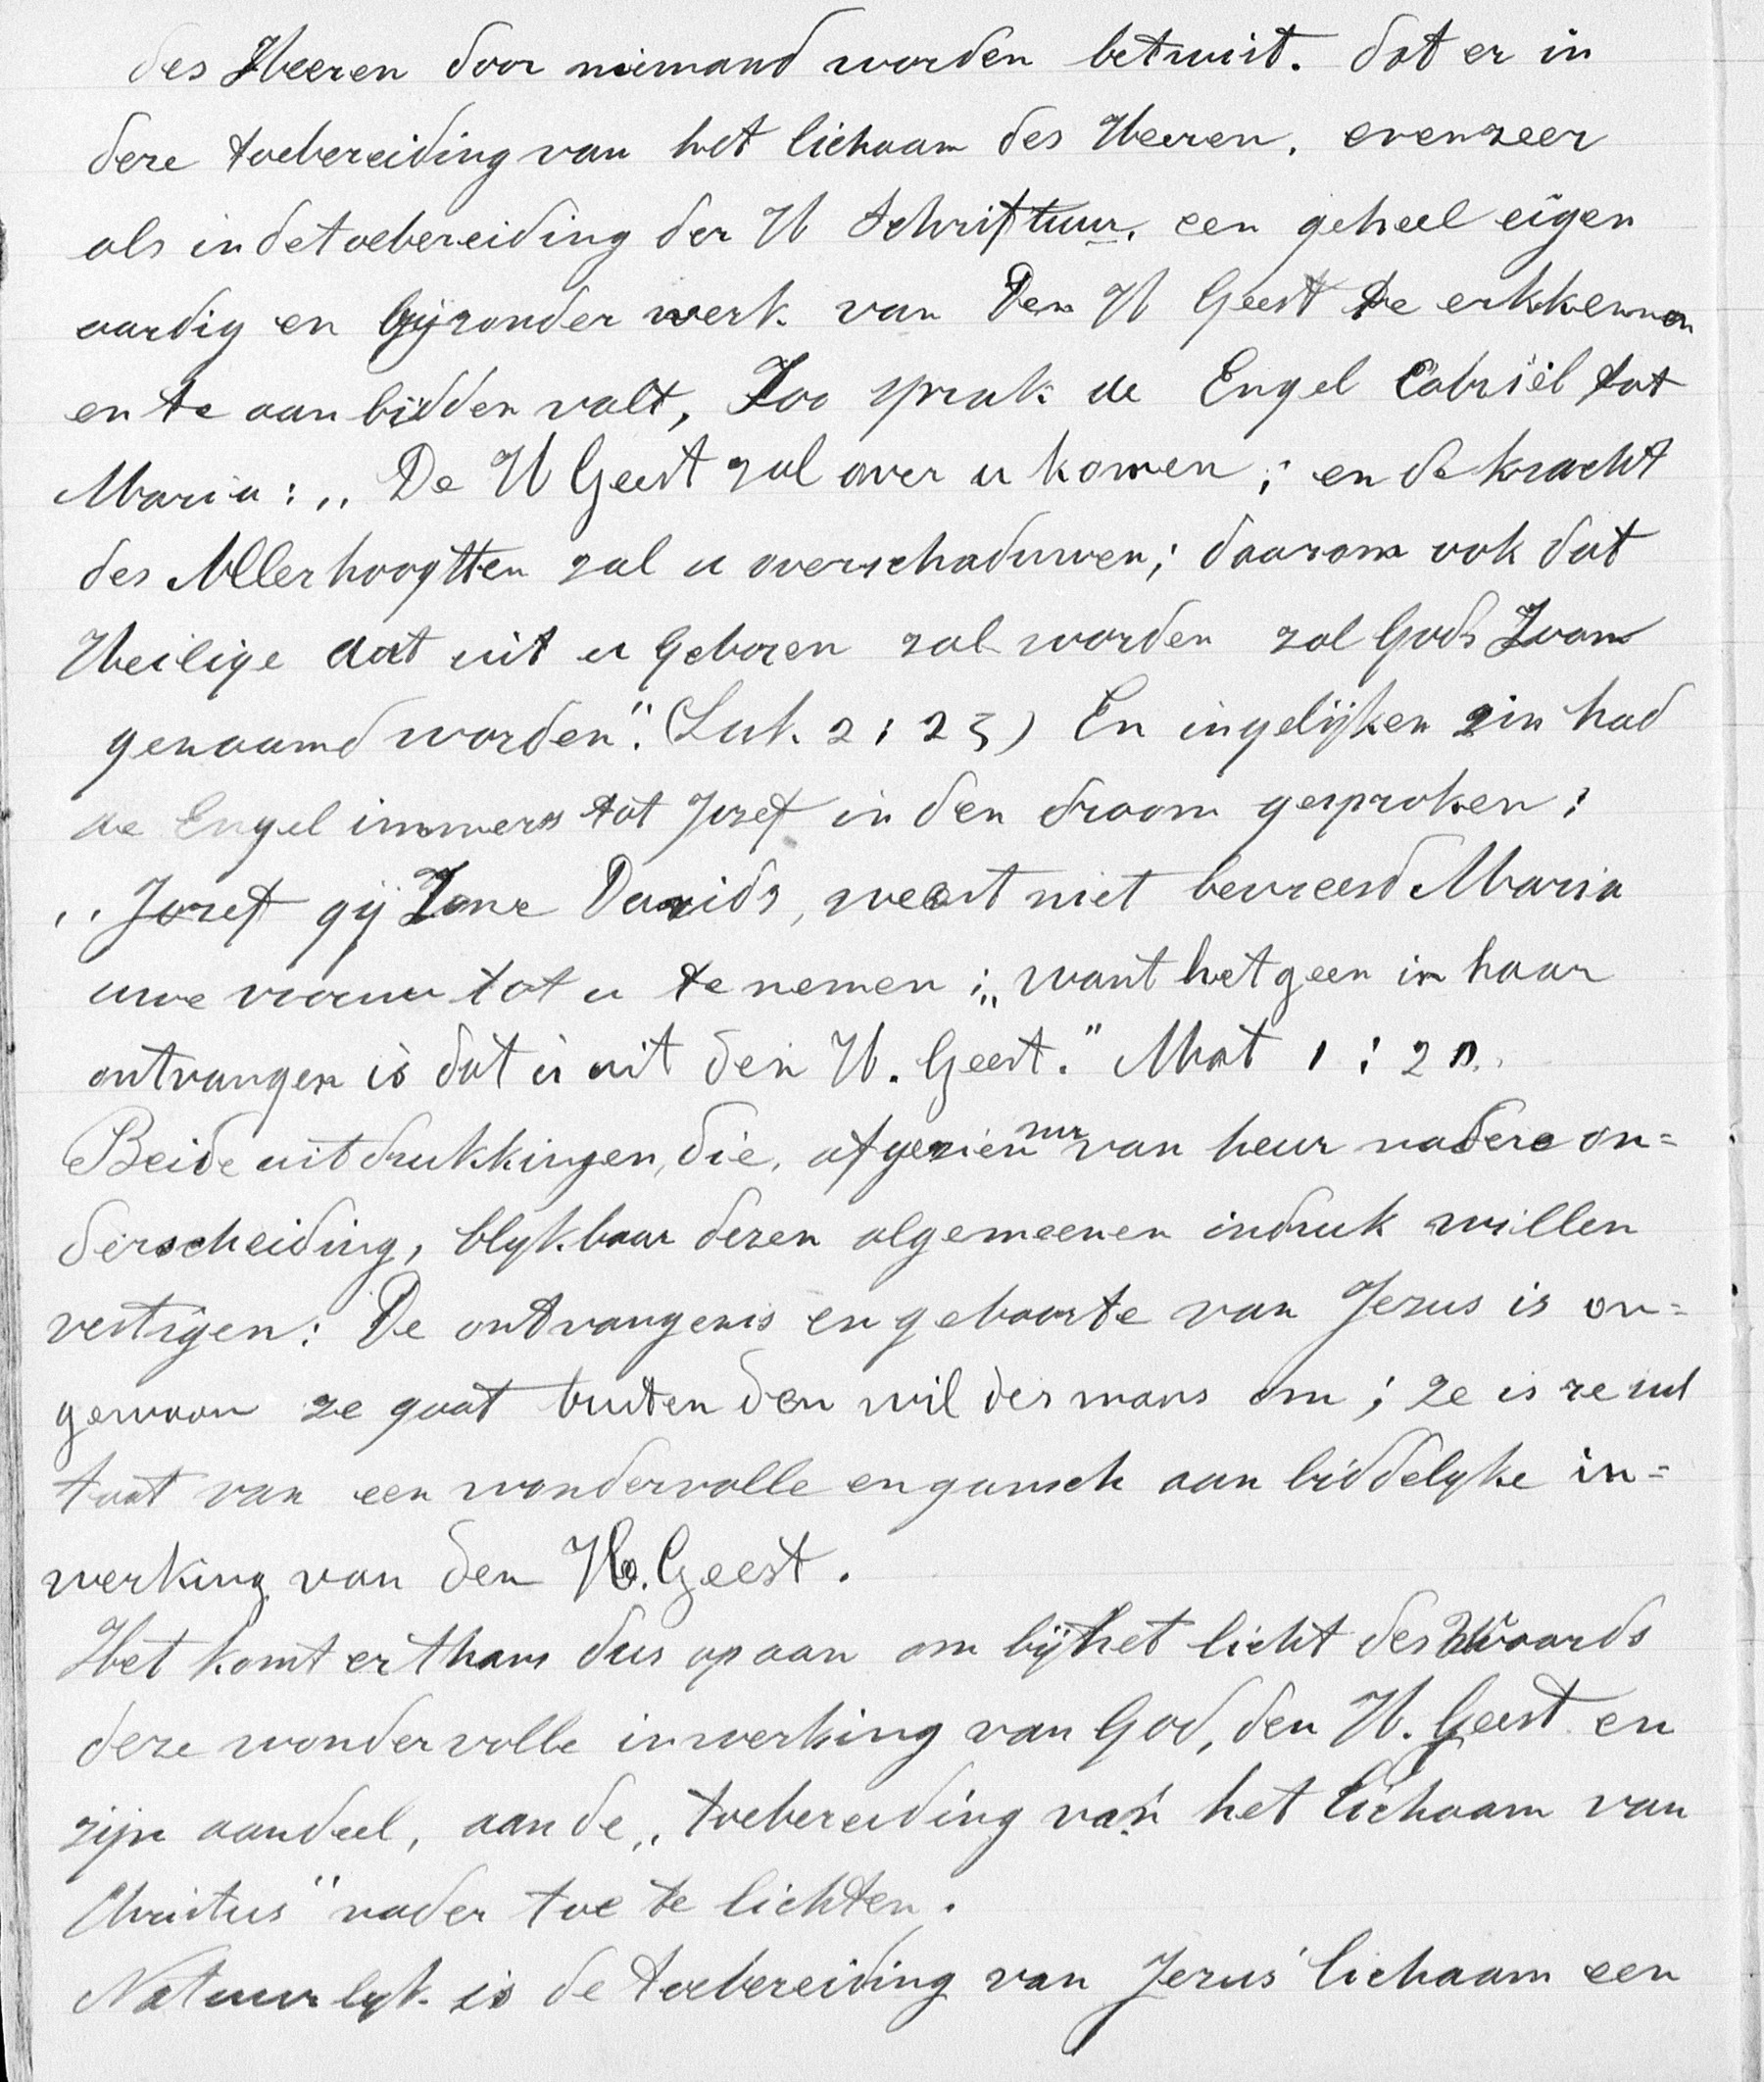 des Heeren door niemand worden betwist. dat er in
deze toebereiding van het lichaam des Heeren, evenzeer
als in de toebereiding der H Schriftuur, een geheel eigen
aardig en bijzonder werk van Den H Geest te erkkennen
en te aanbidden valt, Zoo sprak de Engel Gabriël tot
Maria: „ De H Geest zal over u komen ; en de kracht
des Allerhoogsten zal u overschaduwen; daarom ook dat
Heilige dat uit u Geboren zal worden zal Gods Zoon
genaamd worden". (Luk. 2 : 25) En ingelijken zin had
de Engel immers tot Jozef in den droom gesproken :
„ Jozef gij Zone Davids, weest niet bevreesd Maria
uwe vrouw tot u te nemen ; „ want hetgeen in haar
ontvangen is dat is uit den H. Geest." Mat 1 : 20.
Beide uitdrukkingen, die, afgezien nu van heur nadere on=
derscheiding, blykbaar dezen algemeenen indruk willen
vestigen: De ontvangenis en geboorte van Jezus is on=
gewoon ze gaat buiten den wil des mans om ; ze is resul
taat van een wondervolle en gansch aanbiddelyke in=
werking van den H. Geest.
Het komt er thans dus op aan om bij het licht des Woords
deze wondervolle inwerking van God, den H. Geest en
zijn aandeel, aan de „ toebereiding van het lichaam van
Christus" nader toe te lichten.
Natuurlyk is de toebereiding van Jezus' lichaam een